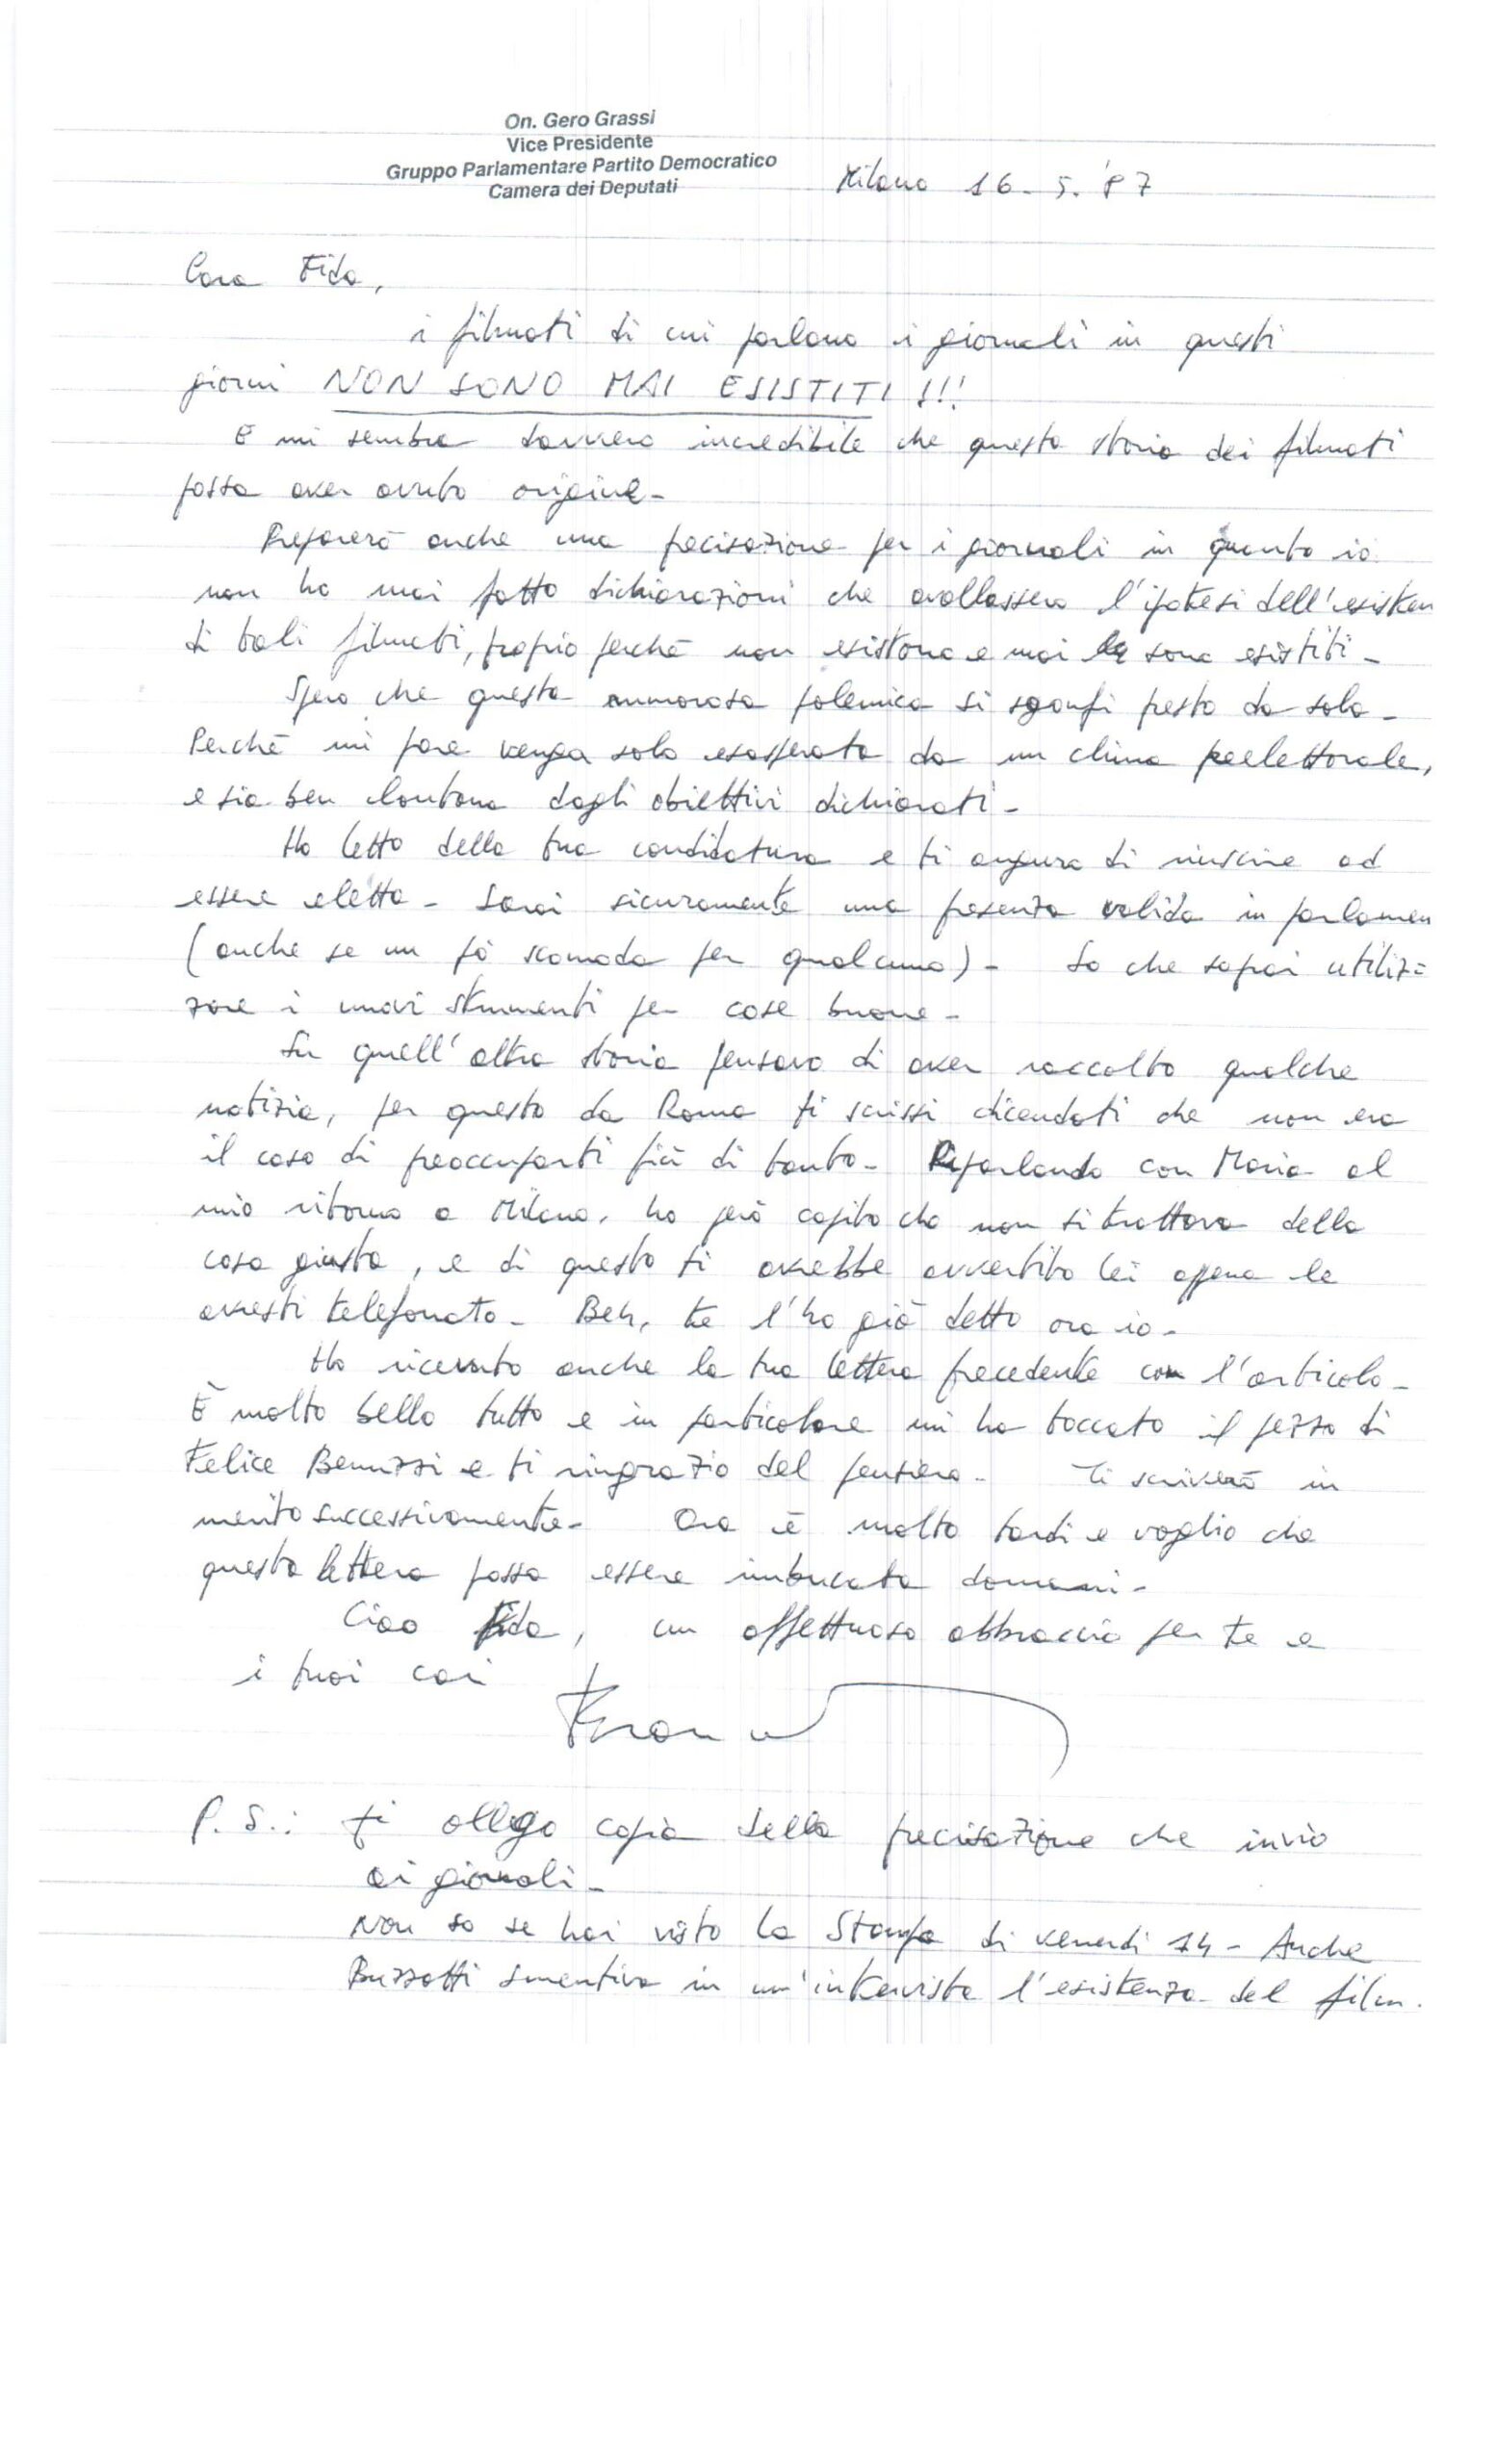 On. Gero Grassi
Vice Presidente
Gruppo Parlamentare Partito Democratico
Camera dei Deputati
Milano 16-5.'87
Cara Fida,
i filmati di cui parlano i giornali in questi
giorni NON SONO MAI ESISTITI!!!
E mi sembra davvero incredibile che questa storia dei filmati
possa aver avuto origine-
Preparerò anche una precisazione per i giornali in quanto io
non ho mai fatto dichiarazioni che avallassero l'ipotesi dell'esisten
di tali filmati, proprio perché non esistono e mai sono esistiti-
Spero che questa rumorosa polemica si sgonfi presto da sola-
Perché mi pare venga solo esasperata da un clima preelettorale,
e sia ben lontana dagli obiettivi dichiarati-
Ho letto della tua candidatura e ti auguro di riuscire ad
essere eletta- Sarai sicuramente una presenza valida in parlamen
(anche se un pò scomoda per qualcuno)- So che saprai utiliz=
zare i nuovi strumenti per cose buone-
Su quell'altra storia pensavo di aver raccolto qualche
notizia, per questo da Roma ti scrissi dicendoti che non era
il caso di preoccuparti più di tanto- Riparlando con Maria al
mio ritorno a Milano, ho però capito che non si trattava della
cosa giusta, e di questo ti avrebbe avvertito lei appena le
avresti telefonato- Beh, te l'ho già detto ora io-
Ho ricevuto anche la tua lettera precedente con l'articolo-
È molto bello tutto e in particolare mi ha toccato il pezzo di
Felice Benuzzi e ti ringrazio del pensiero- Ti scriverò in
merito successivamente- Ora è molto tardi e voglio che
questa lettera possa essere imbucata domani-
Ciao Fida, un affettuoso abbraccio per te e
i tuoi cari
Franco
P.S.: ti allego copia della precisazione che invio
ai giornali-
Non so se hai visto la Stampa di venerdi 14- Anche
Buzzatti smentiva in un'intervista l'esistenza del film.